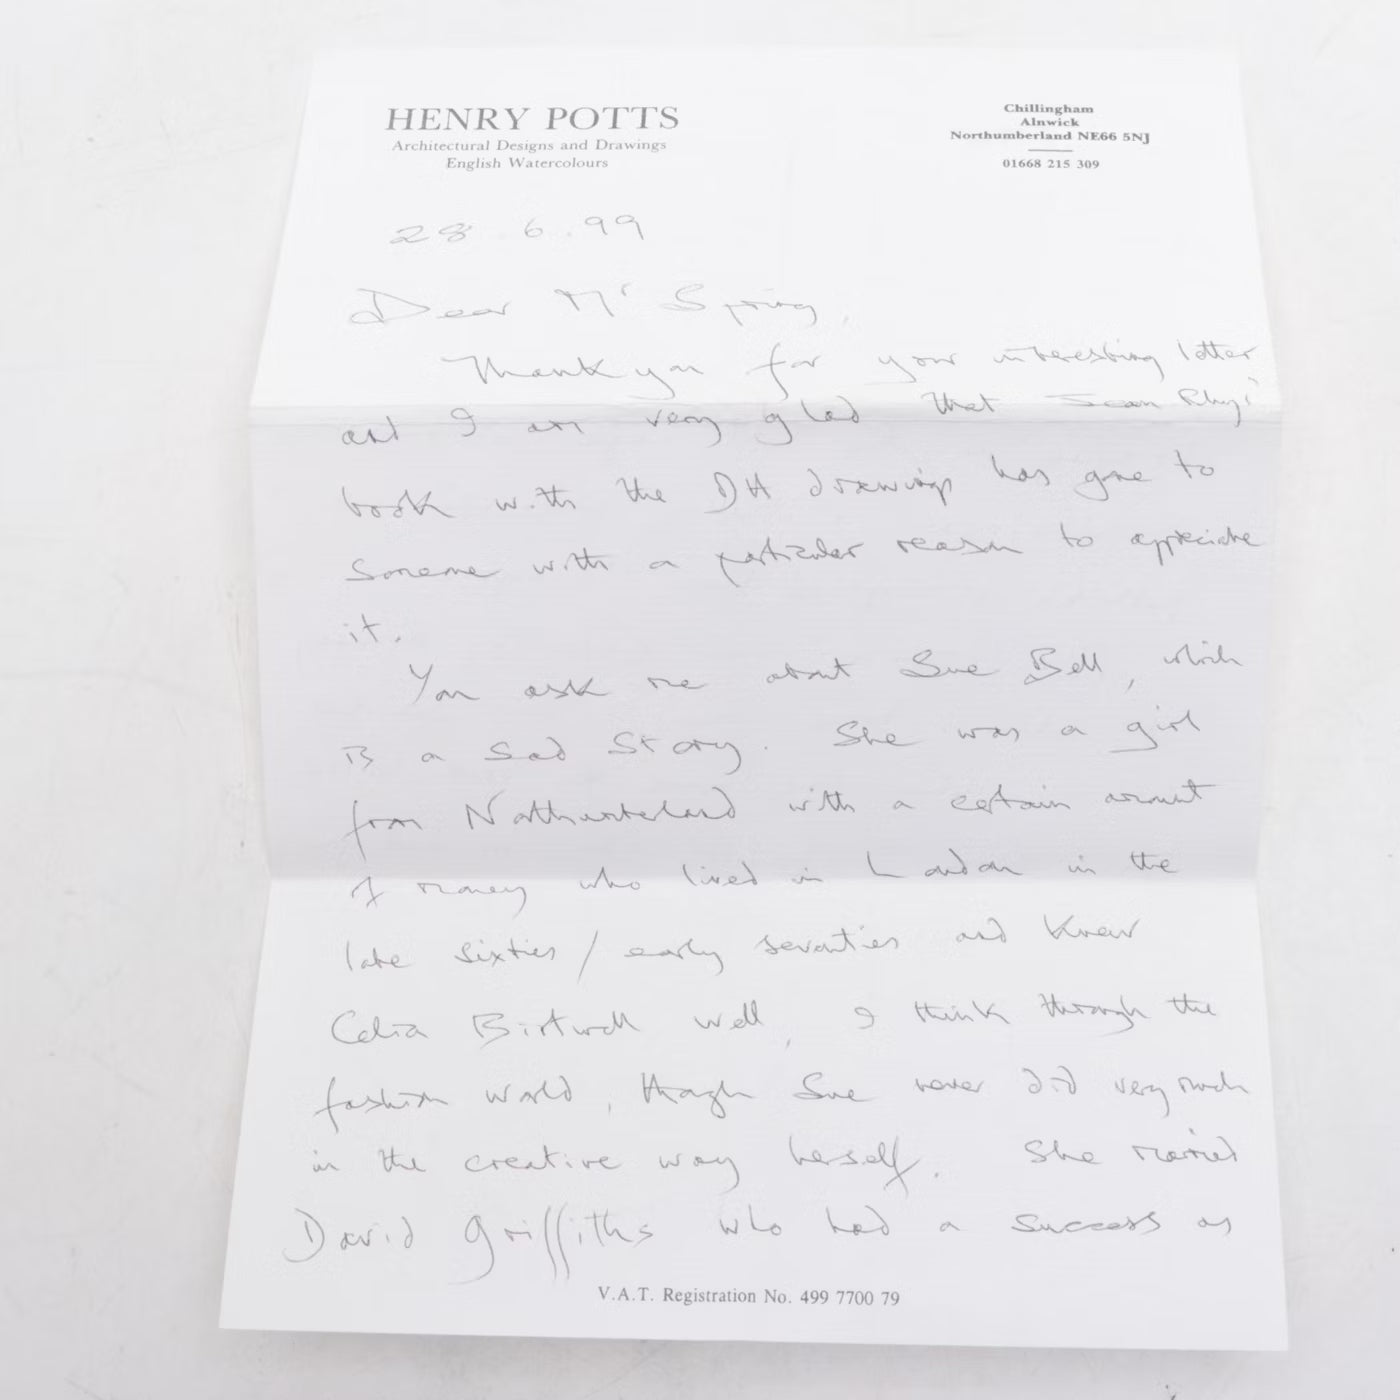 HENRY POTTS
Architectural Designs and Drawings
English Watercolours
Chillingham
Alnwick
Northumberland NE66 5NJ
01668 215 309
28 . 6 . 99
Dear Mr Spring,
Thank you for your interesting letter
and I am very glad that Jean Rhys'
book with the DH drawings has gone to
someone with a particular reason to appreciate
it.
You ask me about Sue Bell, which
is a sad story. She was a girl
from Northumberland with a certain amount
of money who lived in London in the
late sixties / early seventies and knew
Celia Birtwell well, I think through the
fashion world, though Sue never did very much
in the creative way herself. She married
David Griffiths who had a success as
V.A.T. Registration No. 499 7700 79